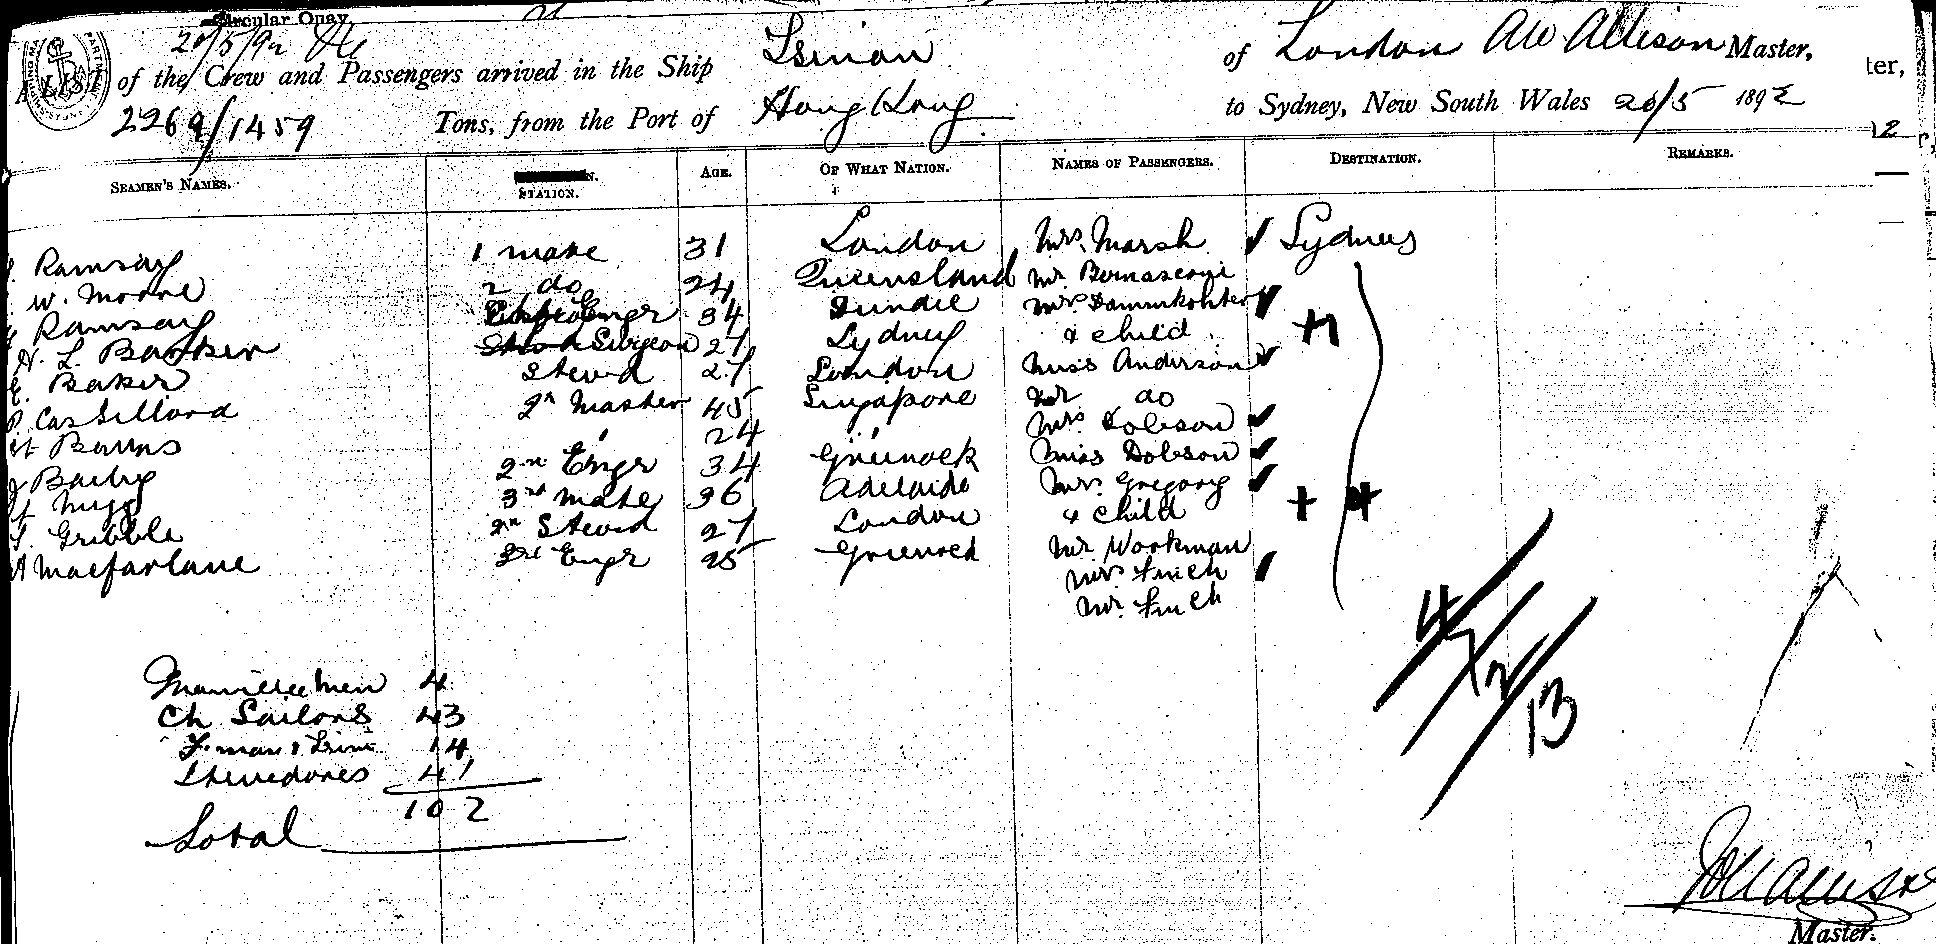 Circular Quay,
20/5/92
A LIST of the Crew and Passengers arrived in the Ship Tsinan of London AW Allison Master,
ter,
2269/1459 Tons, from the Port of Hong Kong to Sydney, New South Wales 20/5 1892
SEAMEN'S NAMES. STATION. AGE. OF WHAT NATION. NAMES OF PASSENGERS. DESTINATION. REMARKS.
Ramsay 1 mate 31 London Mrs. Marsh Sydney
W. Moore 2 do 24 Queensland Mr. Bernasconi
Ramsay Engr 34 Dundee Mrs
H. L. Barker Surgeon 27 Sydney & child
E. Baker Stewd 27 London Miss Anderson
2n Master 45 Singapore Mr do
Barns 24 " Mrs Dobson
Baily 2nd Engr 34 Greenock Miss Dobson
Nugg 3rd Mate 36 Adelaide Mrs. Gregory
Gribble 2n Stewd 27 London & child
A Macfarlane 3rd Engr 25 Greenock Mr Workman
Mrs Finch
Mr. Finch
4/7/2/13
Manillamen 4
Ch Sailors 43
F.man & Trim. 14
Stevedores 41
102
Total
Master.